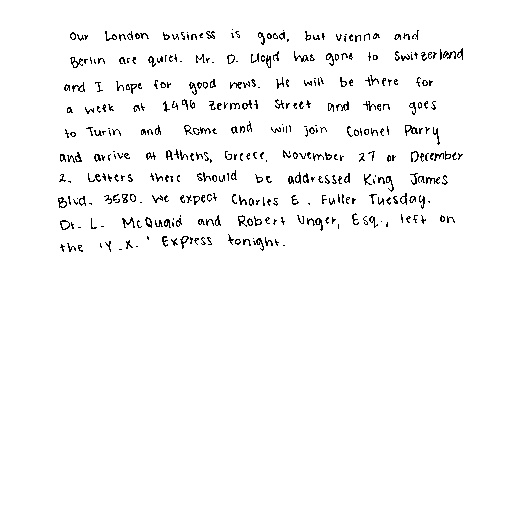 Our London business is good, but vienna and
Berlin are quiet. Mr. D. Lloyd has gone to Switzerland
and I hope for good news. He will be there for
a week at 1496 Zermott Street and then goes
to Turin and Rome and will join Colonel Parry
and arrive at Athens, Greece, November 27 or December
2. Letters there should be addressed King James
Blvd. 3580. We expect Charles E. Fuller Tuesday.
Dr. L. McQuaid and Robert Unger, Esq., left on
the 'Y.X.' Express tonight.